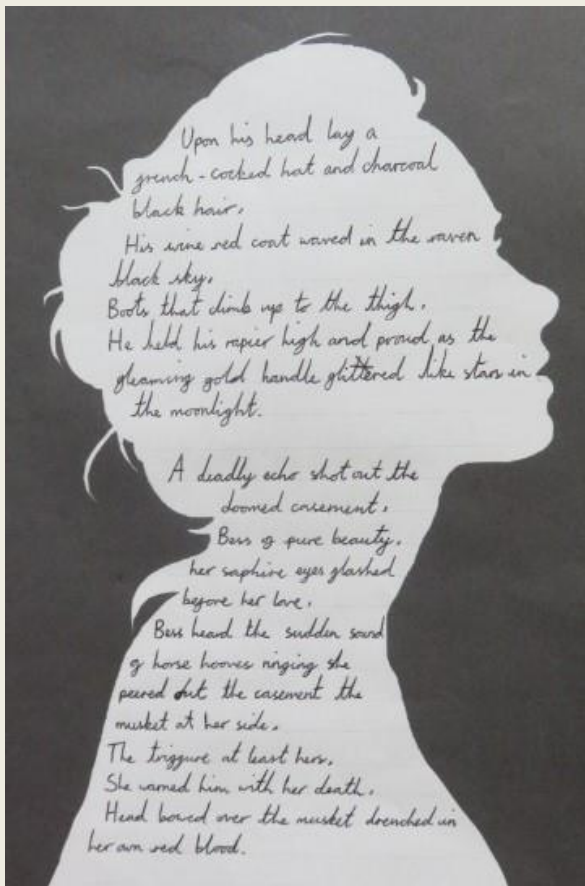 Upon his head lay a
french-cocked hat and charcoal
black hair.
His wine red coat waved in the raven
black sky.
Boots that climb up to the thigh.
He held his rapier high and proud as the
gleaming gold handle glittered like stars in
the moonlight.
A deadly echo shot out the
doomed casement.
Bess of pure beauty.
her saphire eyes flashed
before her love.
Bess heard the sudden sound
of horse hooves ringing she
peered out the casement the
musket at her side.
The triggure at least hers.
She warned him with her death.
Head bowed over the musket drenched in
her own red blood.